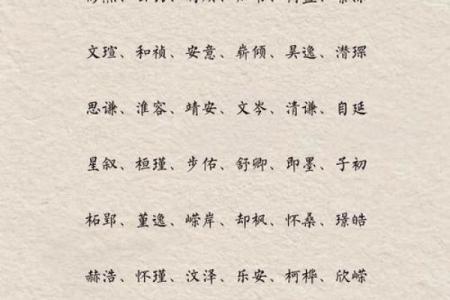 文瑄、和祯、安意、嵛倾、昊逸、潜琛
思谦、淮容、靖安、文岑、清谦、自延
星叙、桓瑾、步佑、舒卿、即墨、子初
柘郢、堇逸、嵘岸、却枫、怀桑、璟皓
赫浩、怀瑾、汶泽、乐安、柯桦、欣嵘